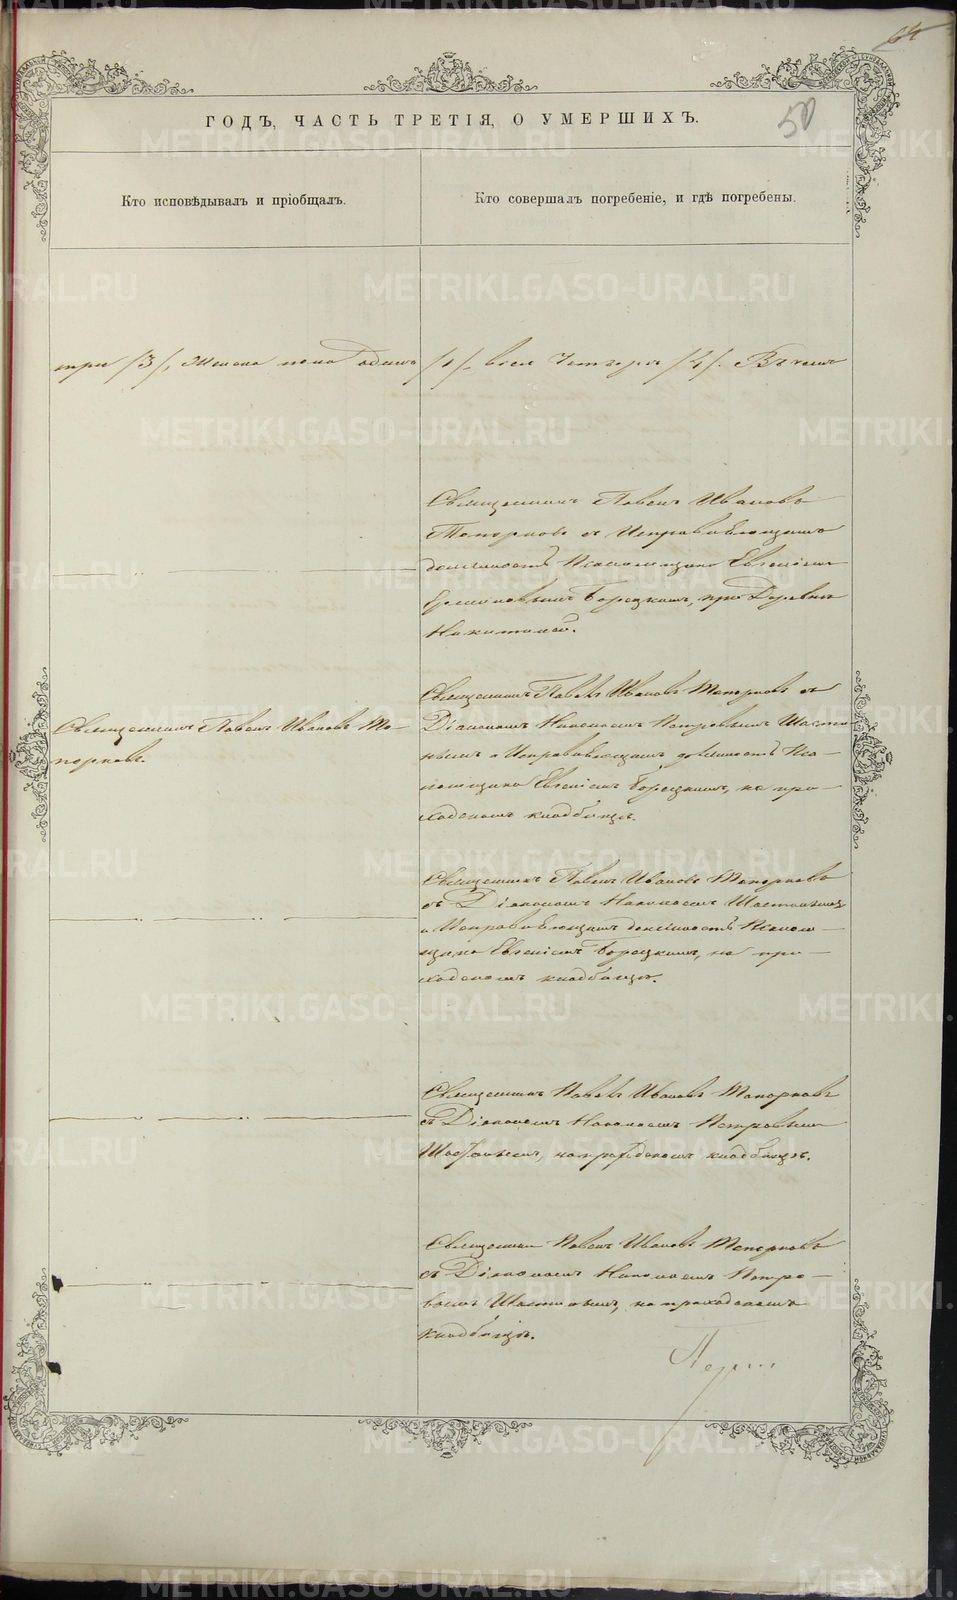 64
50
ГОДЪ, ЧАСТЬ ТРЕТІЯ, О УМЕРШИХЪ.
Кто исповѣдывалъ и пріобщалъ.
Кто совершалъ погребеніе, и гдѣ погребены.
три /3/, Женска пола одинъ /1/, всего Четверо /4/. 
Священникъ Павелъ Ивановъ
Топорковъ съ Исправляющимъ
должность Псаломщика Евгеніемъ
Борецкимъ, при Деревнѣ
Священникъ Павелъ Ивановъ То-
порковъ.
Священникъ Павелъ Ивановъ Топорковъ съ
Діакономъ Николаемъ Петровымъ
и Исправляющимъ должность Пса-
ломщика Евгеніемъ Борецкимъ, на при-
ходскомъ кладбищѣ.
Священникъ Павелъ Ивановъ Топорковъ
съ Діакономъ Николаемъ
и Исправляющимъ должность Псалом-
щика Евгеніемъ Борецкимъ, на при-
ходскомъ кладбищѣ.
Священникъ Павелъ Ивановъ Топорковъ
съ Діакономъ Николаемъ Петровымъ
на приходскомъ кладбищѣ.
Священникъ Павелъ Ивановъ Топорковъ
съ Діакономъ Николаемъ Петро-
вымъ на приходскомъ
кладбищѣ.
METRIKI.GASO-URAL.RU